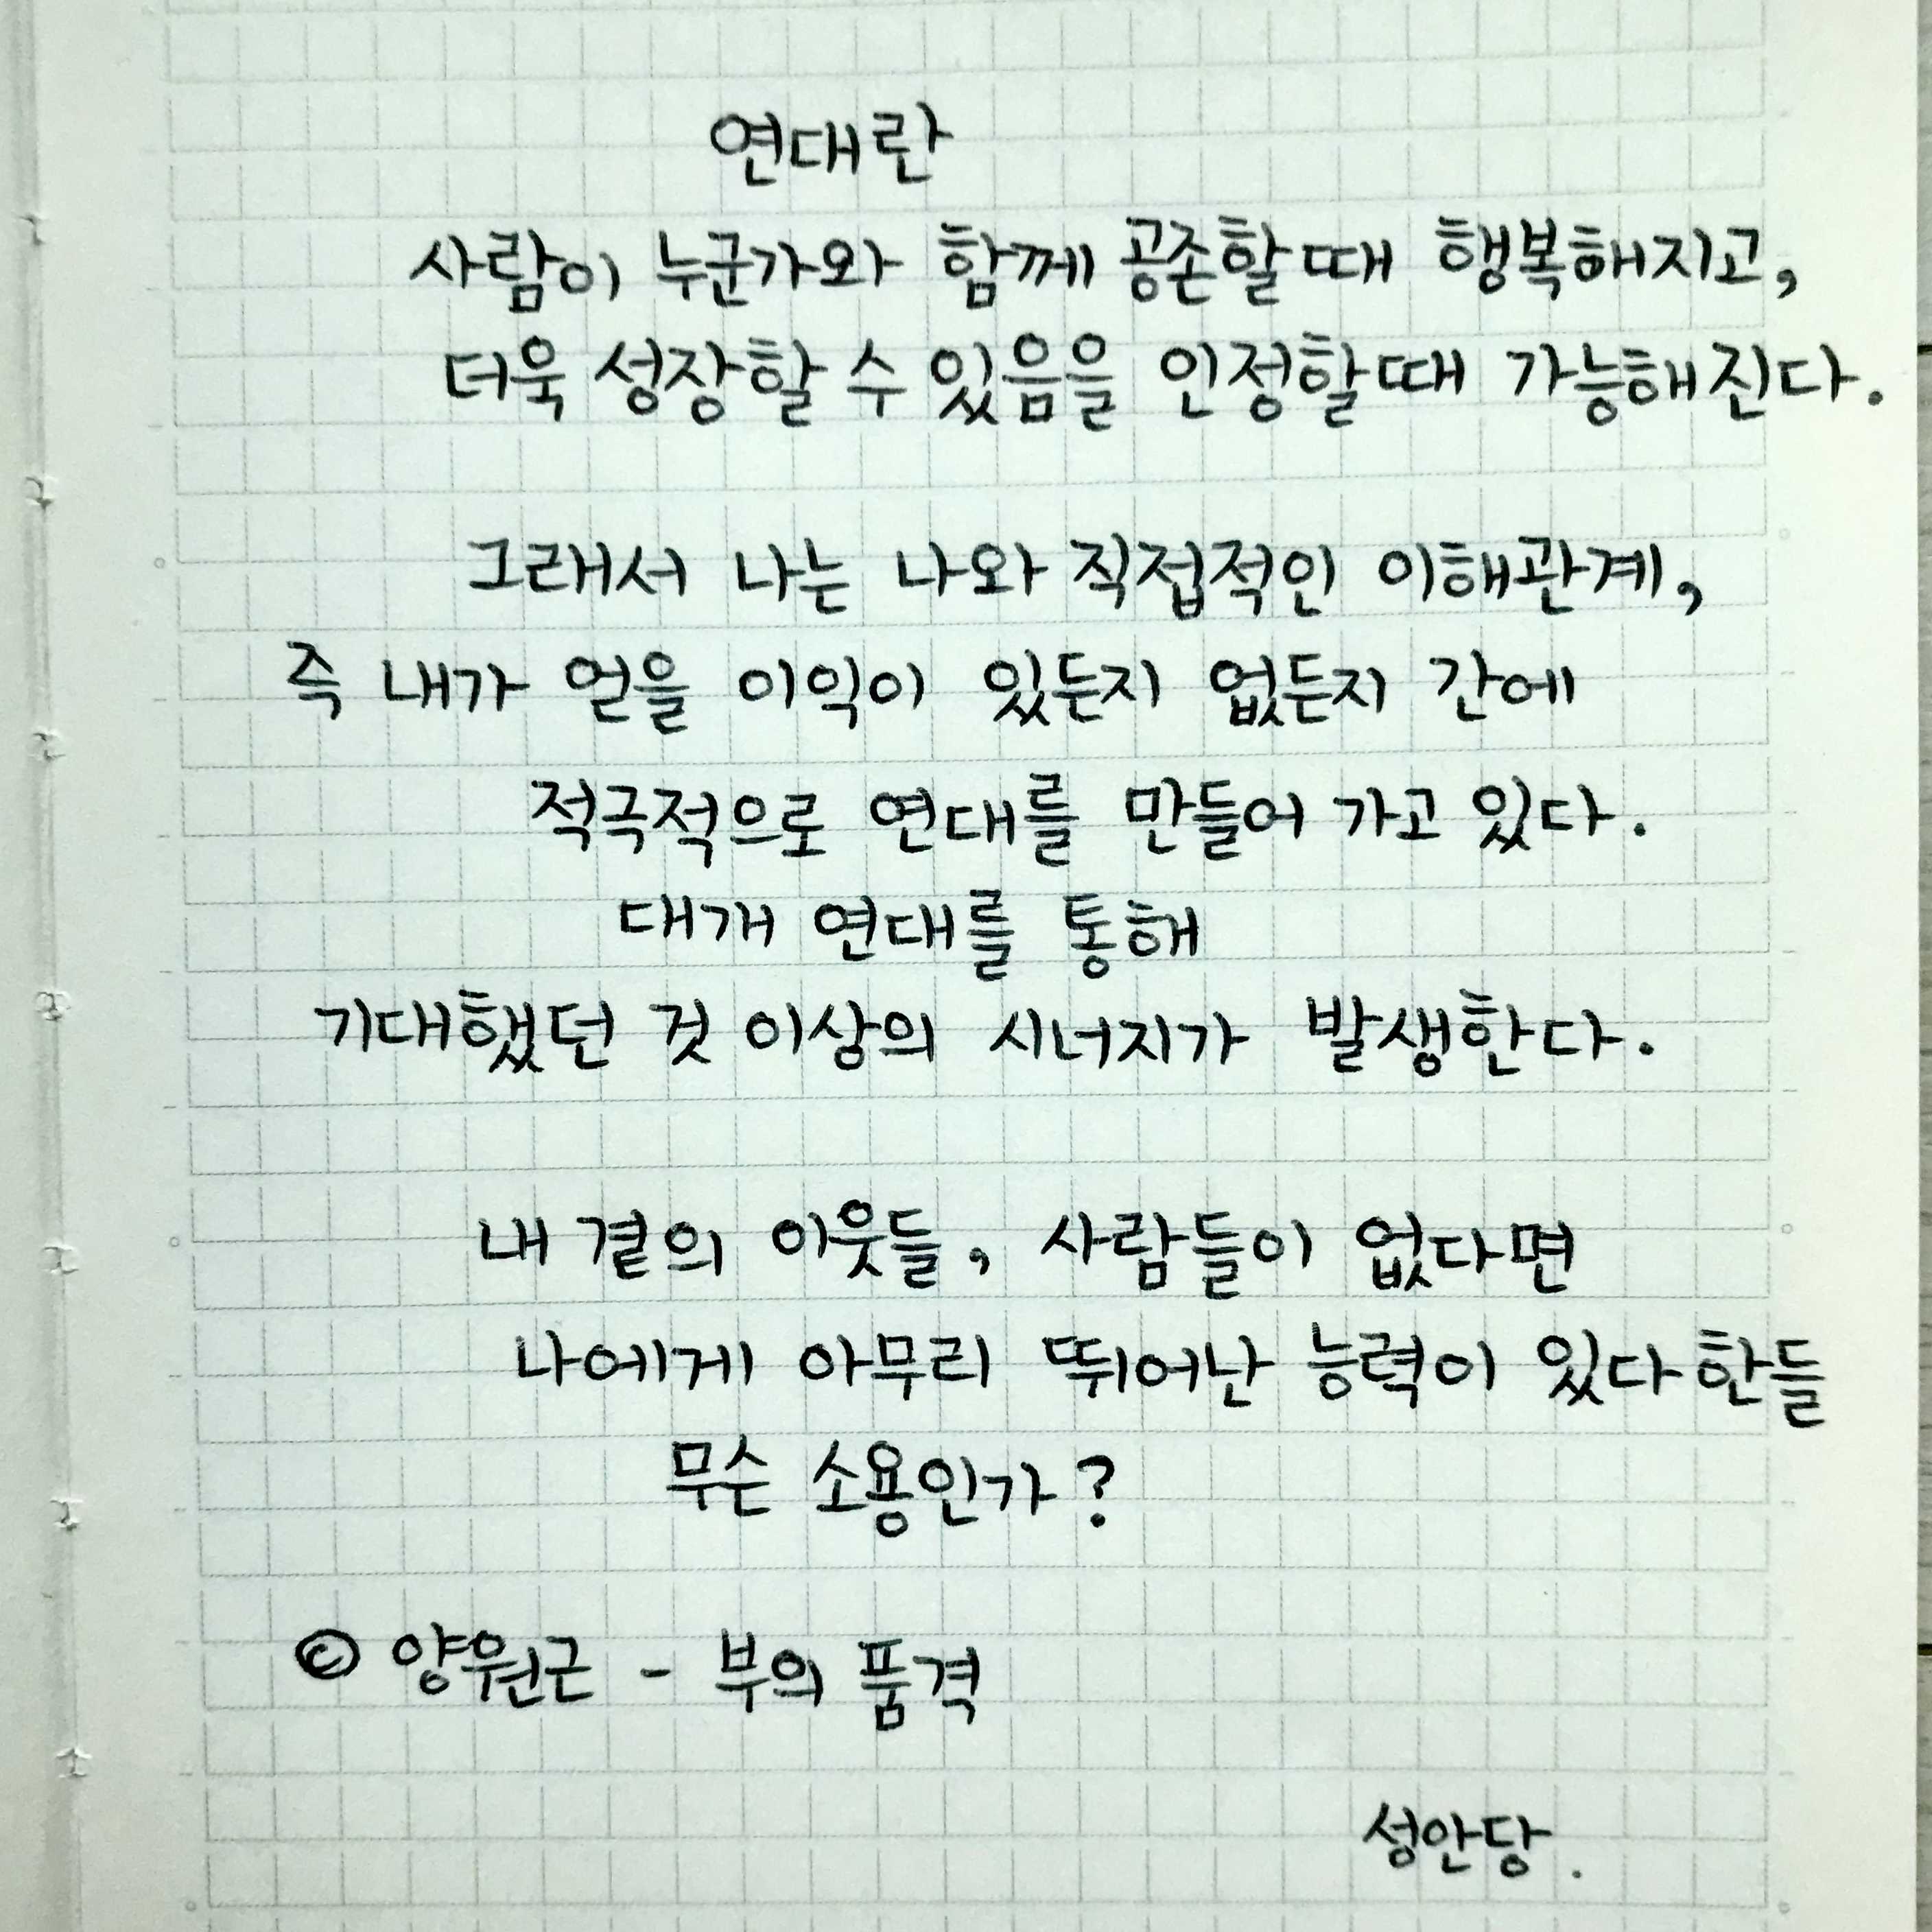 연대란
사람이 누군가와 함께 공존할때 행복해지고,
더욱 성장할 수 있음을 인정할때 가능해진다.
그래서 나는 나와 직접적인 이해관계,
즉 내가 얻을 이익이 있든지 없든지 간에
적극적으로 연대를 만들어 가고 있다.
대개 연대를 통해
기대했던 것 이상의 시너지가 발생한다.
내 곁의 이웃들, 사람들이 없다면
나에게 아무리 뛰어난 능력이 있다 한들
무슨 소용인가?
© 양원근 - 부의 품격
성안당.